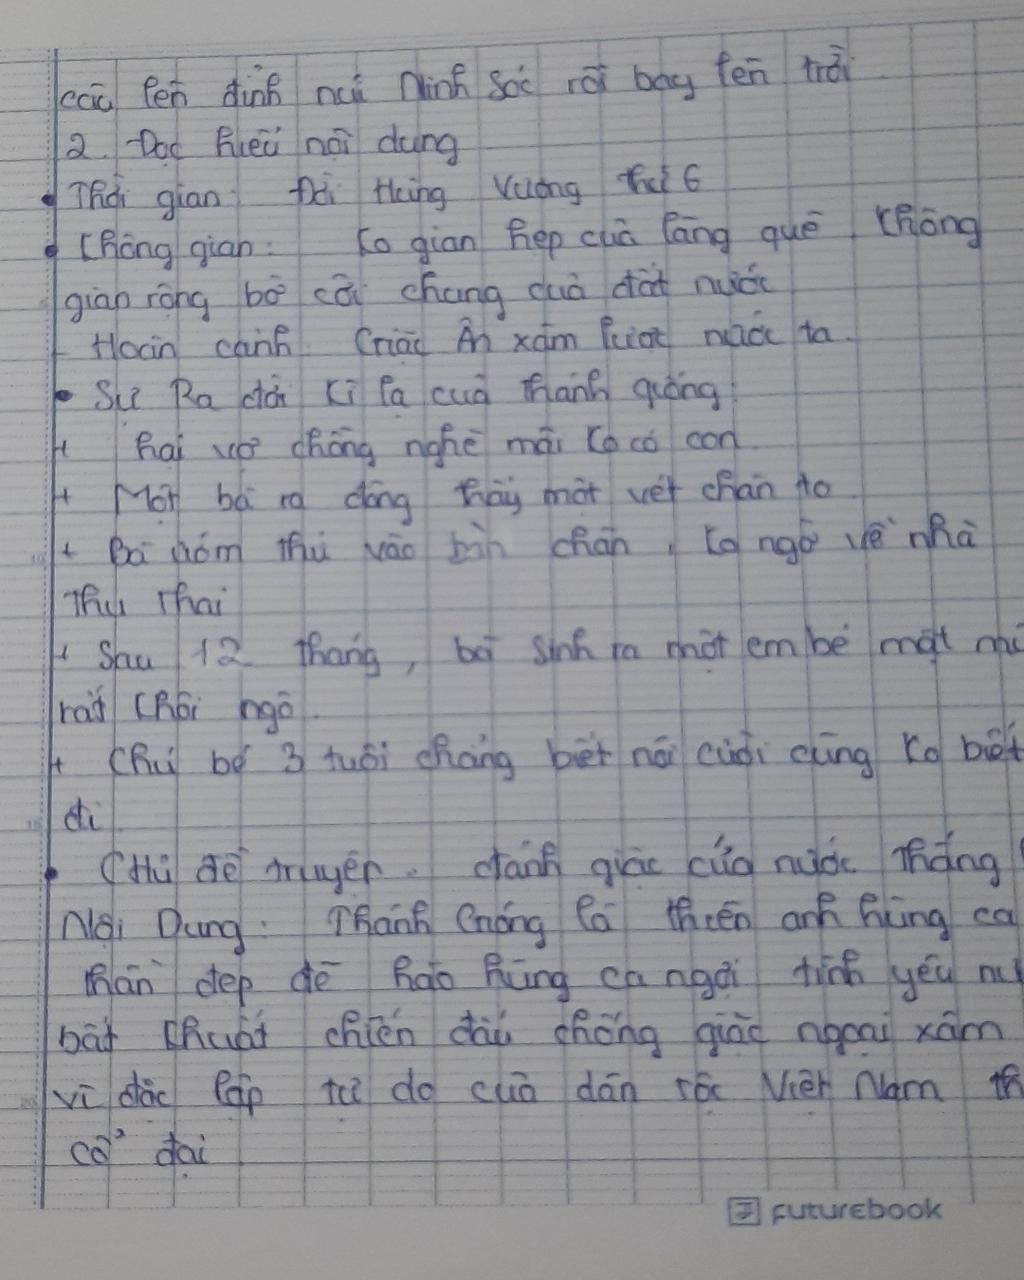 cao lên đỉnh núi Ninh Sóc rồi bay lên trời
2. Đọc hiểu nội dung
• Thời gian: Đời Hùng Vương thứ 6
• Không gian: Ko gian hẹp của làng quê, không
gian rộng bờ cõi chung của đất nước
- Hoàn cảnh: Giặc Ân xâm lược nước ta.
• Sự Ra đời kì lạ của Thánh gióng
+ hai vợ chồng nghề mãi ko có con
+ Một bà ra đồng thấy một vết chân to
+ Bà ướm thử vào bàn chân, ko ngờ về nhà
Thụ Thai
+ Sau 12 tháng, bà sinh ra một em bé mặt mũ
rất khôi ngô.
+ Chú bé 3 tuổi chẳng biết nói cười cũng ko biết
đi
• CHủ đề truyện. đánh giặc cứu nước Thắng
Nội Dung: Thánh Gióng là thiên anh hùng ca
thần đẹp đẽ hào hùng ca ngợi tình yêu nư
bất khuất chiến đấu chống giặc ngoại xâm
vì độc lập tự do của dân tộc Việt Nam th
cổ đại
FUTUREBOOK